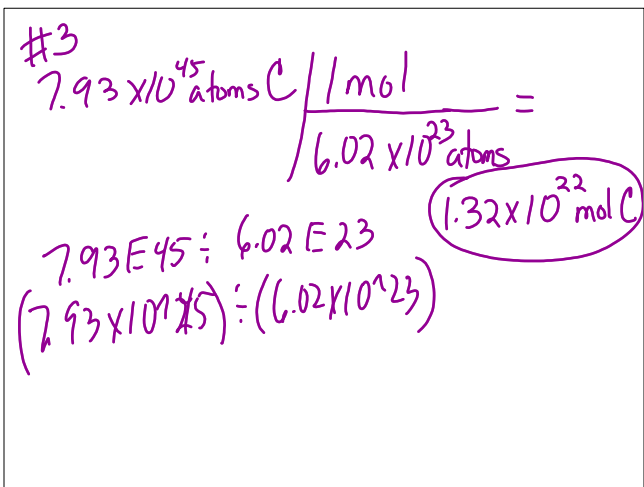 #3
7.93 x10^45 atoms C | 1 mol
6.02 x10^23 atoms =
1.32x10^22 mol C
7.93E45 ÷ 6.02 E 23
(7.93 x10^45) ÷ (6.02x10^23)